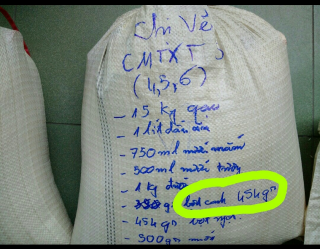 Chị Vẽ
(MTXT)
(4,5,6)
- 15 kg gạo
- 1 lít dầu ăn
- 750ml nước mắm
- 500ml nước tương
- 1 kg đường
- 350 g bột canh 454gr
- 454gr bột ngọt
- 300gr